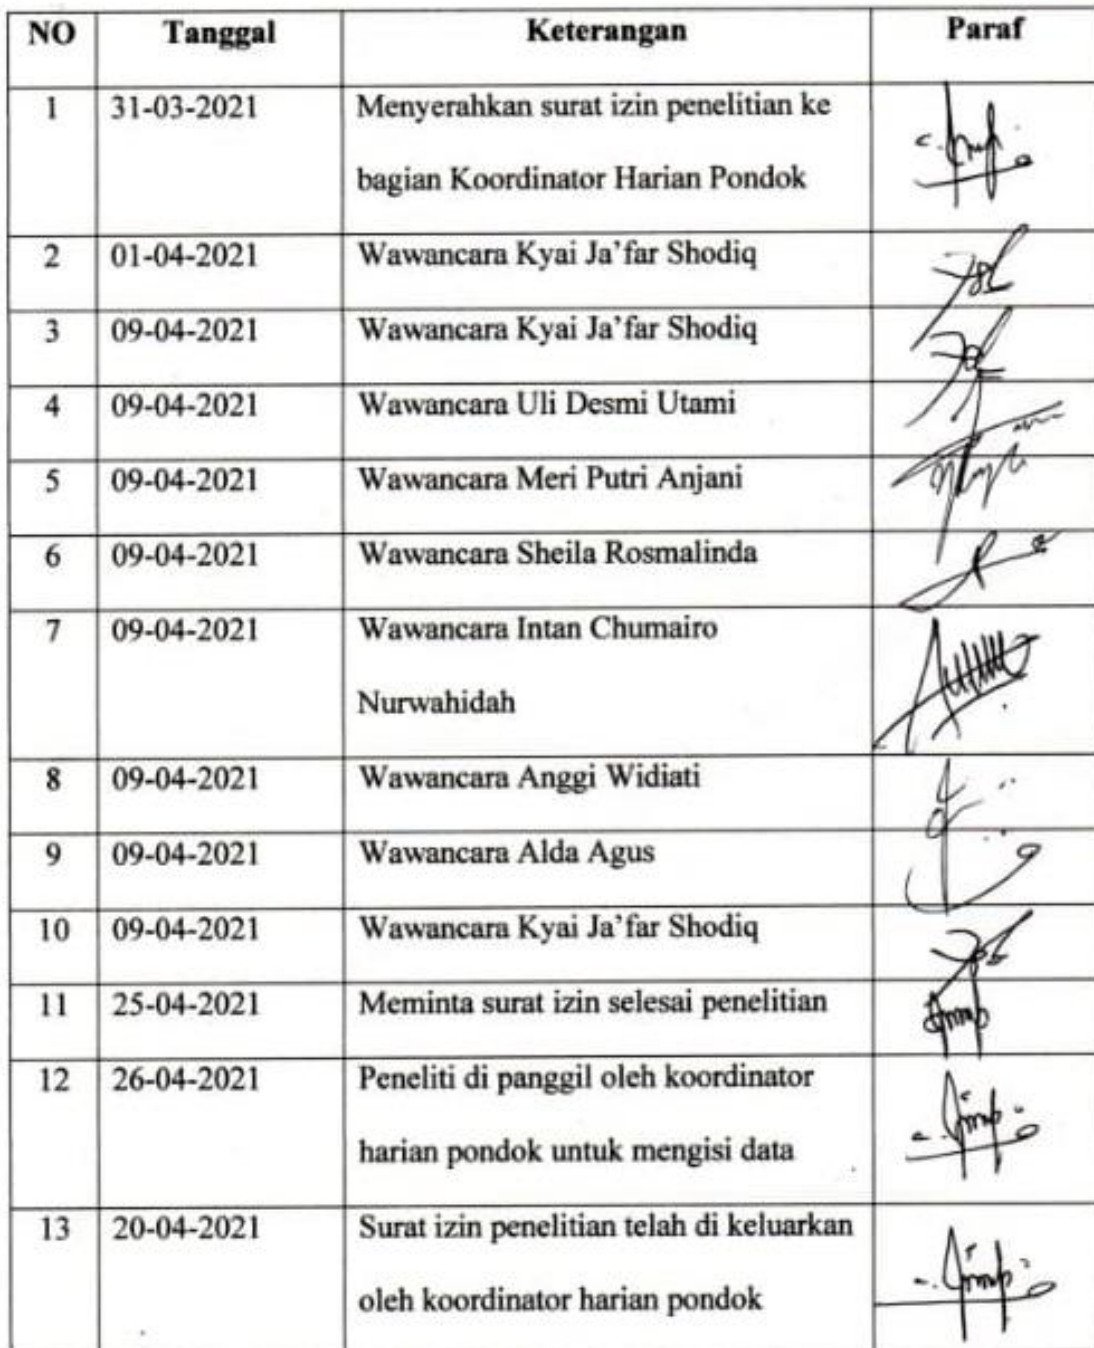 NO Tanggal Keterangan Paraf
1 31-03-2021 Menyerahkan surat izin penelitian ke
bagian Koordinator Harian Pondok
2 01-04-2021 Wawancara Kyai Ja'far Shodiq
3 09-04-2021 Wawancara Kyai Ja'far Shodiq
4 09-04-2021 Wawancara Uli Desmi Utami
5 09-04-2021 Wawancara Meri Putri Anjani
6 09-04-2021 Wawancara Sheila Rosmalinda
7 09-04-2021 Wawancara Intan Chumairo
Nurwahidah
8 09-04-2021 Wawancara Anggi Widiati
9 09-04-2021 Wawancara Alda Agus
10 09-04-2021 Wawancara Kyai Ja'far Shodiq
11 25-04-2021 Meminta surat izin selesai penelitian
12 26-04-2021 Peneliti di panggil oleh koordinator
harian pondok untuk mengisi data
13 20-04-2021 Surat izin penelitian telah di keluarkan
oleh koordinator harian pondok